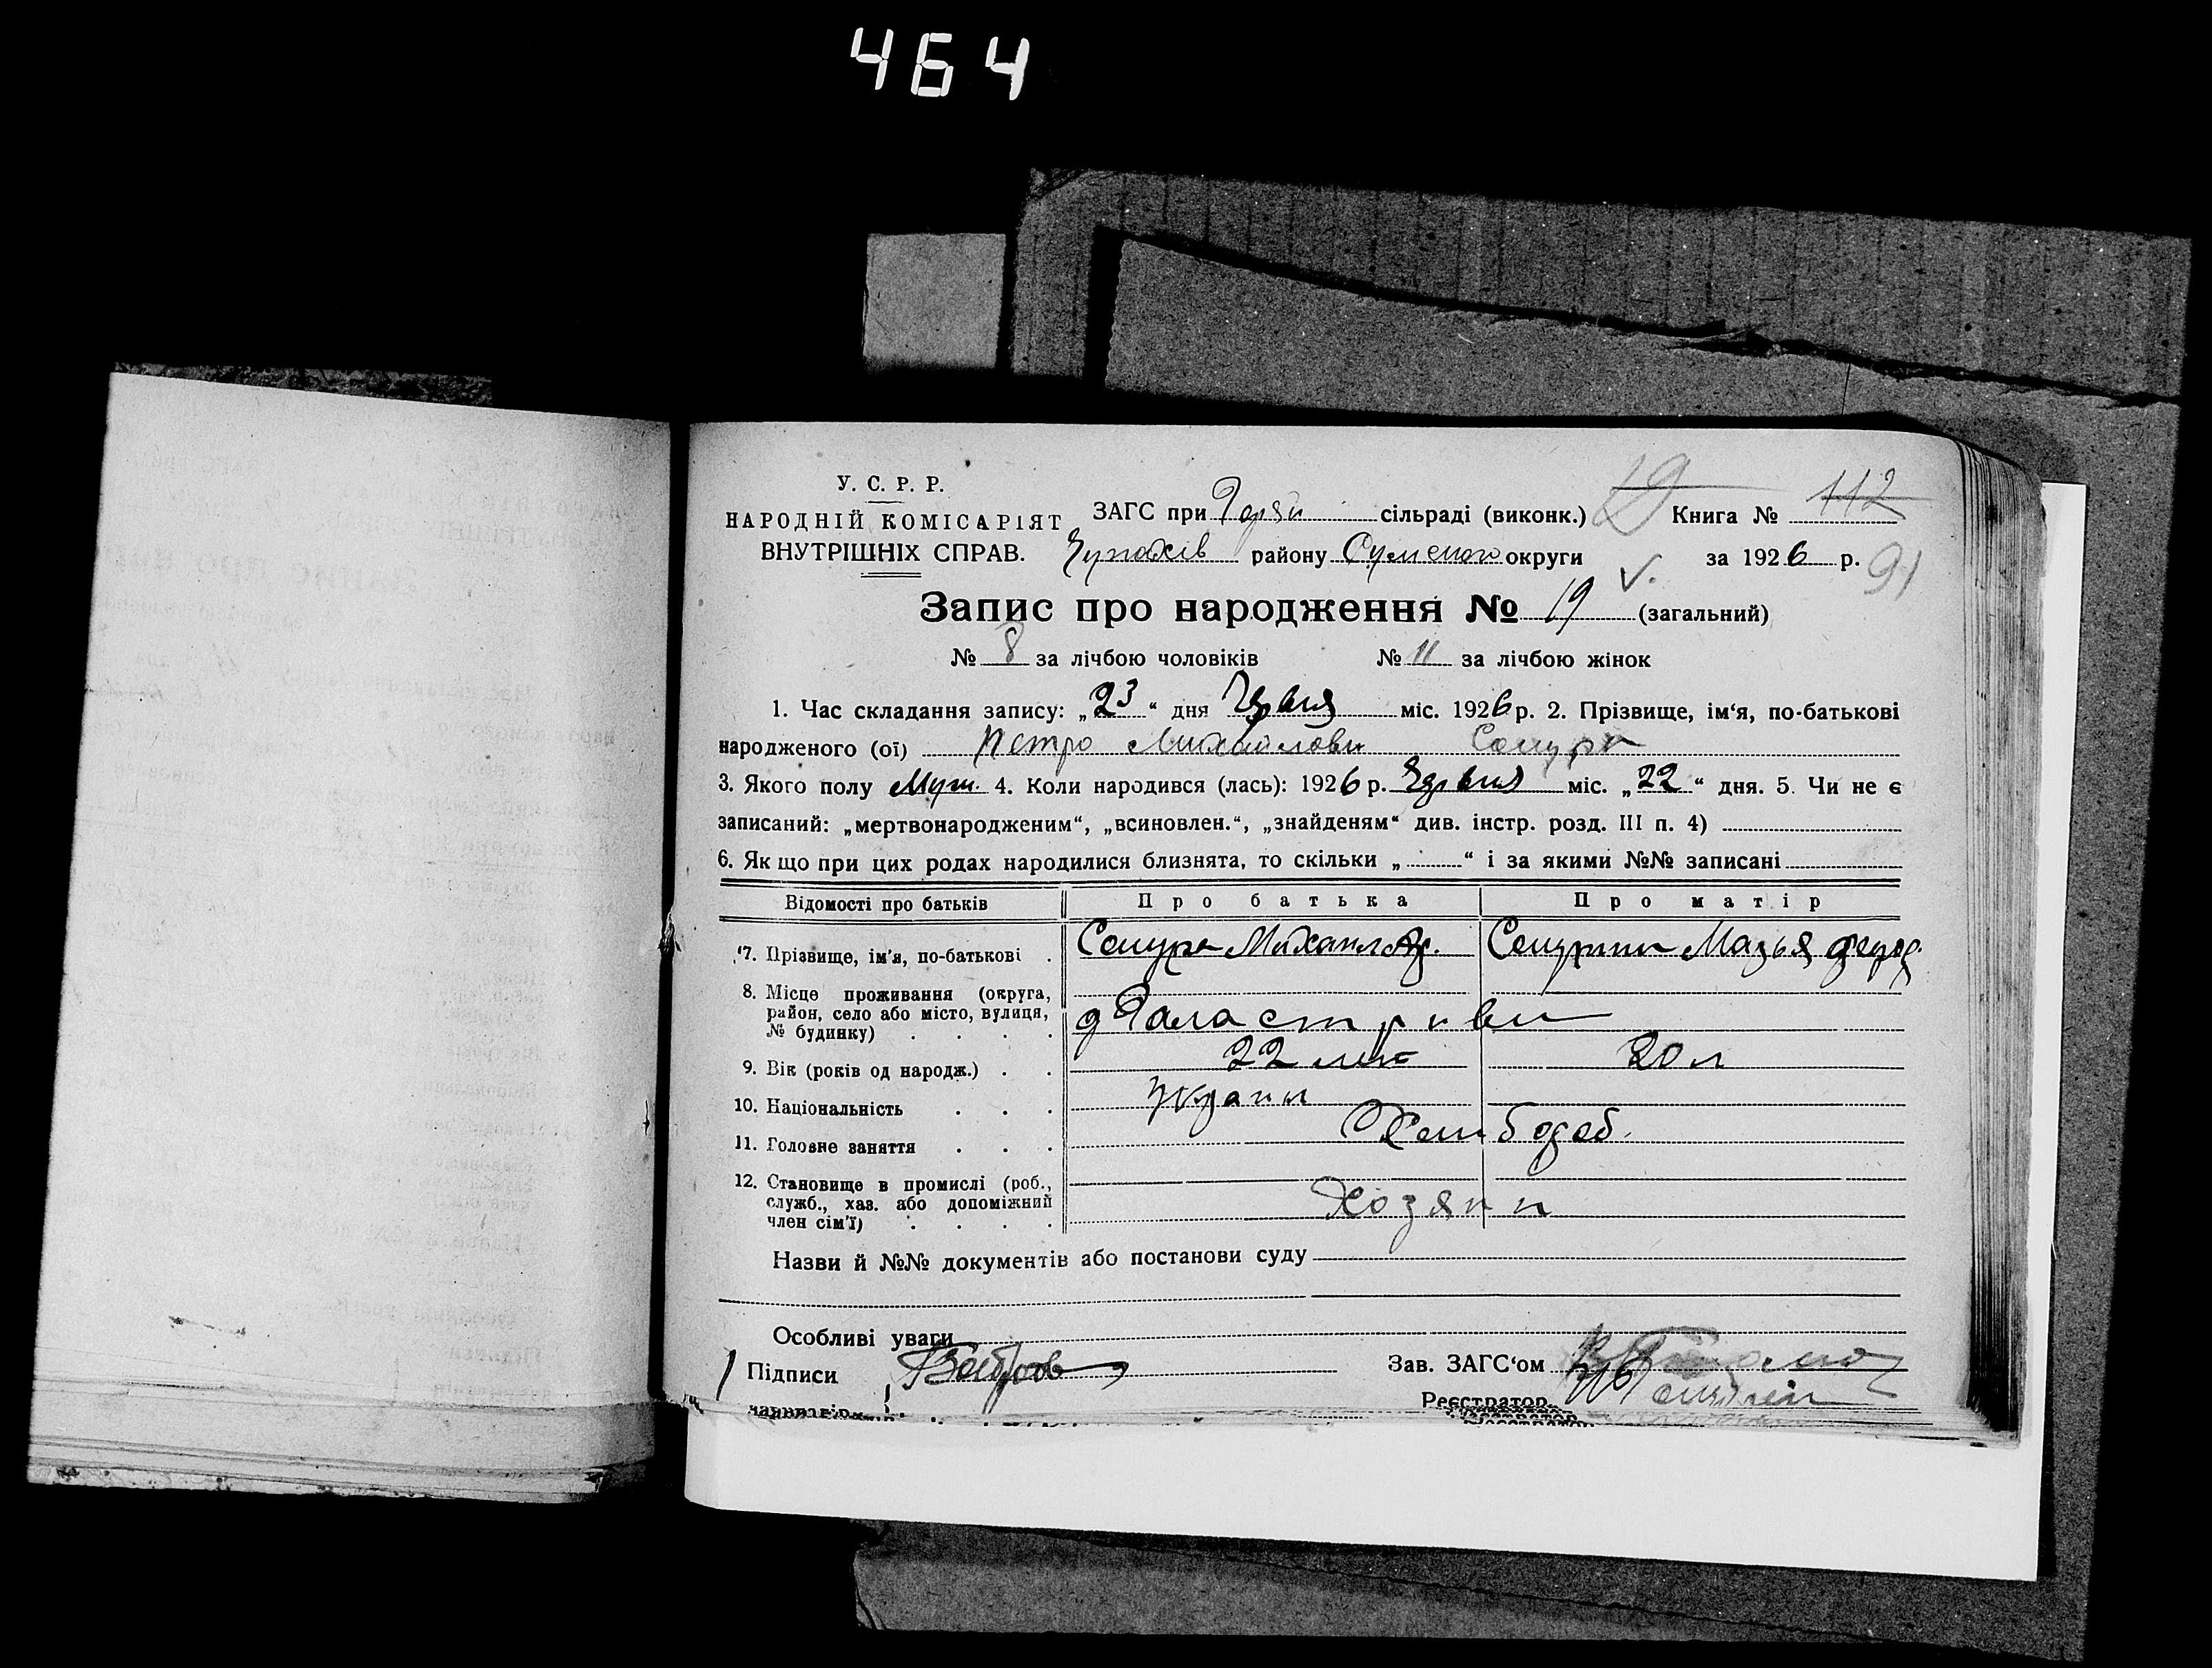 464
У. С. Р. Р.
НАРОДНІЙ КОМІСАРІЯТ
ВНУТРІШНІХ СПРАВ.
ЗАГС при сільраді (виконк.) 19 Книга № 112
Чупахів району округи за 1926 р. 91
Запис про народження № 19 (загальний)
№ 8 за лічбою чоловіків № 11 за лічбою жінок
1. Час складання запису: „23“ дня Червня міс. 1926 р. 2. Прізвище, ім‘я, по-батькові
народженого (ої) Петро Михайлови
3. Якого полу Муж. 4. Коли народився (лась): 1926 р. Червня міс. „22“ дня. 5. Чи не є
записаний: „мертвонародженим“, „всиновлен.“, „знайденям“ див. інстр. розд. III п. 4)
6. Якщо при цих родах народилися близнята, то скільки „ “ і за якими №№ записані
Відомості про батьків Про батька Про матір
7. Прізвище, ім'я, по-батькові Михаил
8. Місце проживання (округа,
район, село або місто, вулиця,
№ будинку)
9. Вік (років од народж.) 22 лет 20 л
10. Національність Украин
11. Головне заняття
12. Становище в промислі (роб.,
служб., хаз. або допоміжний
член сім'ї) Хозяин
Назви й №№ документів або постанови суду
Особливі уваги
Підписи Зав. ЗАГС‘ом
Реєстратор